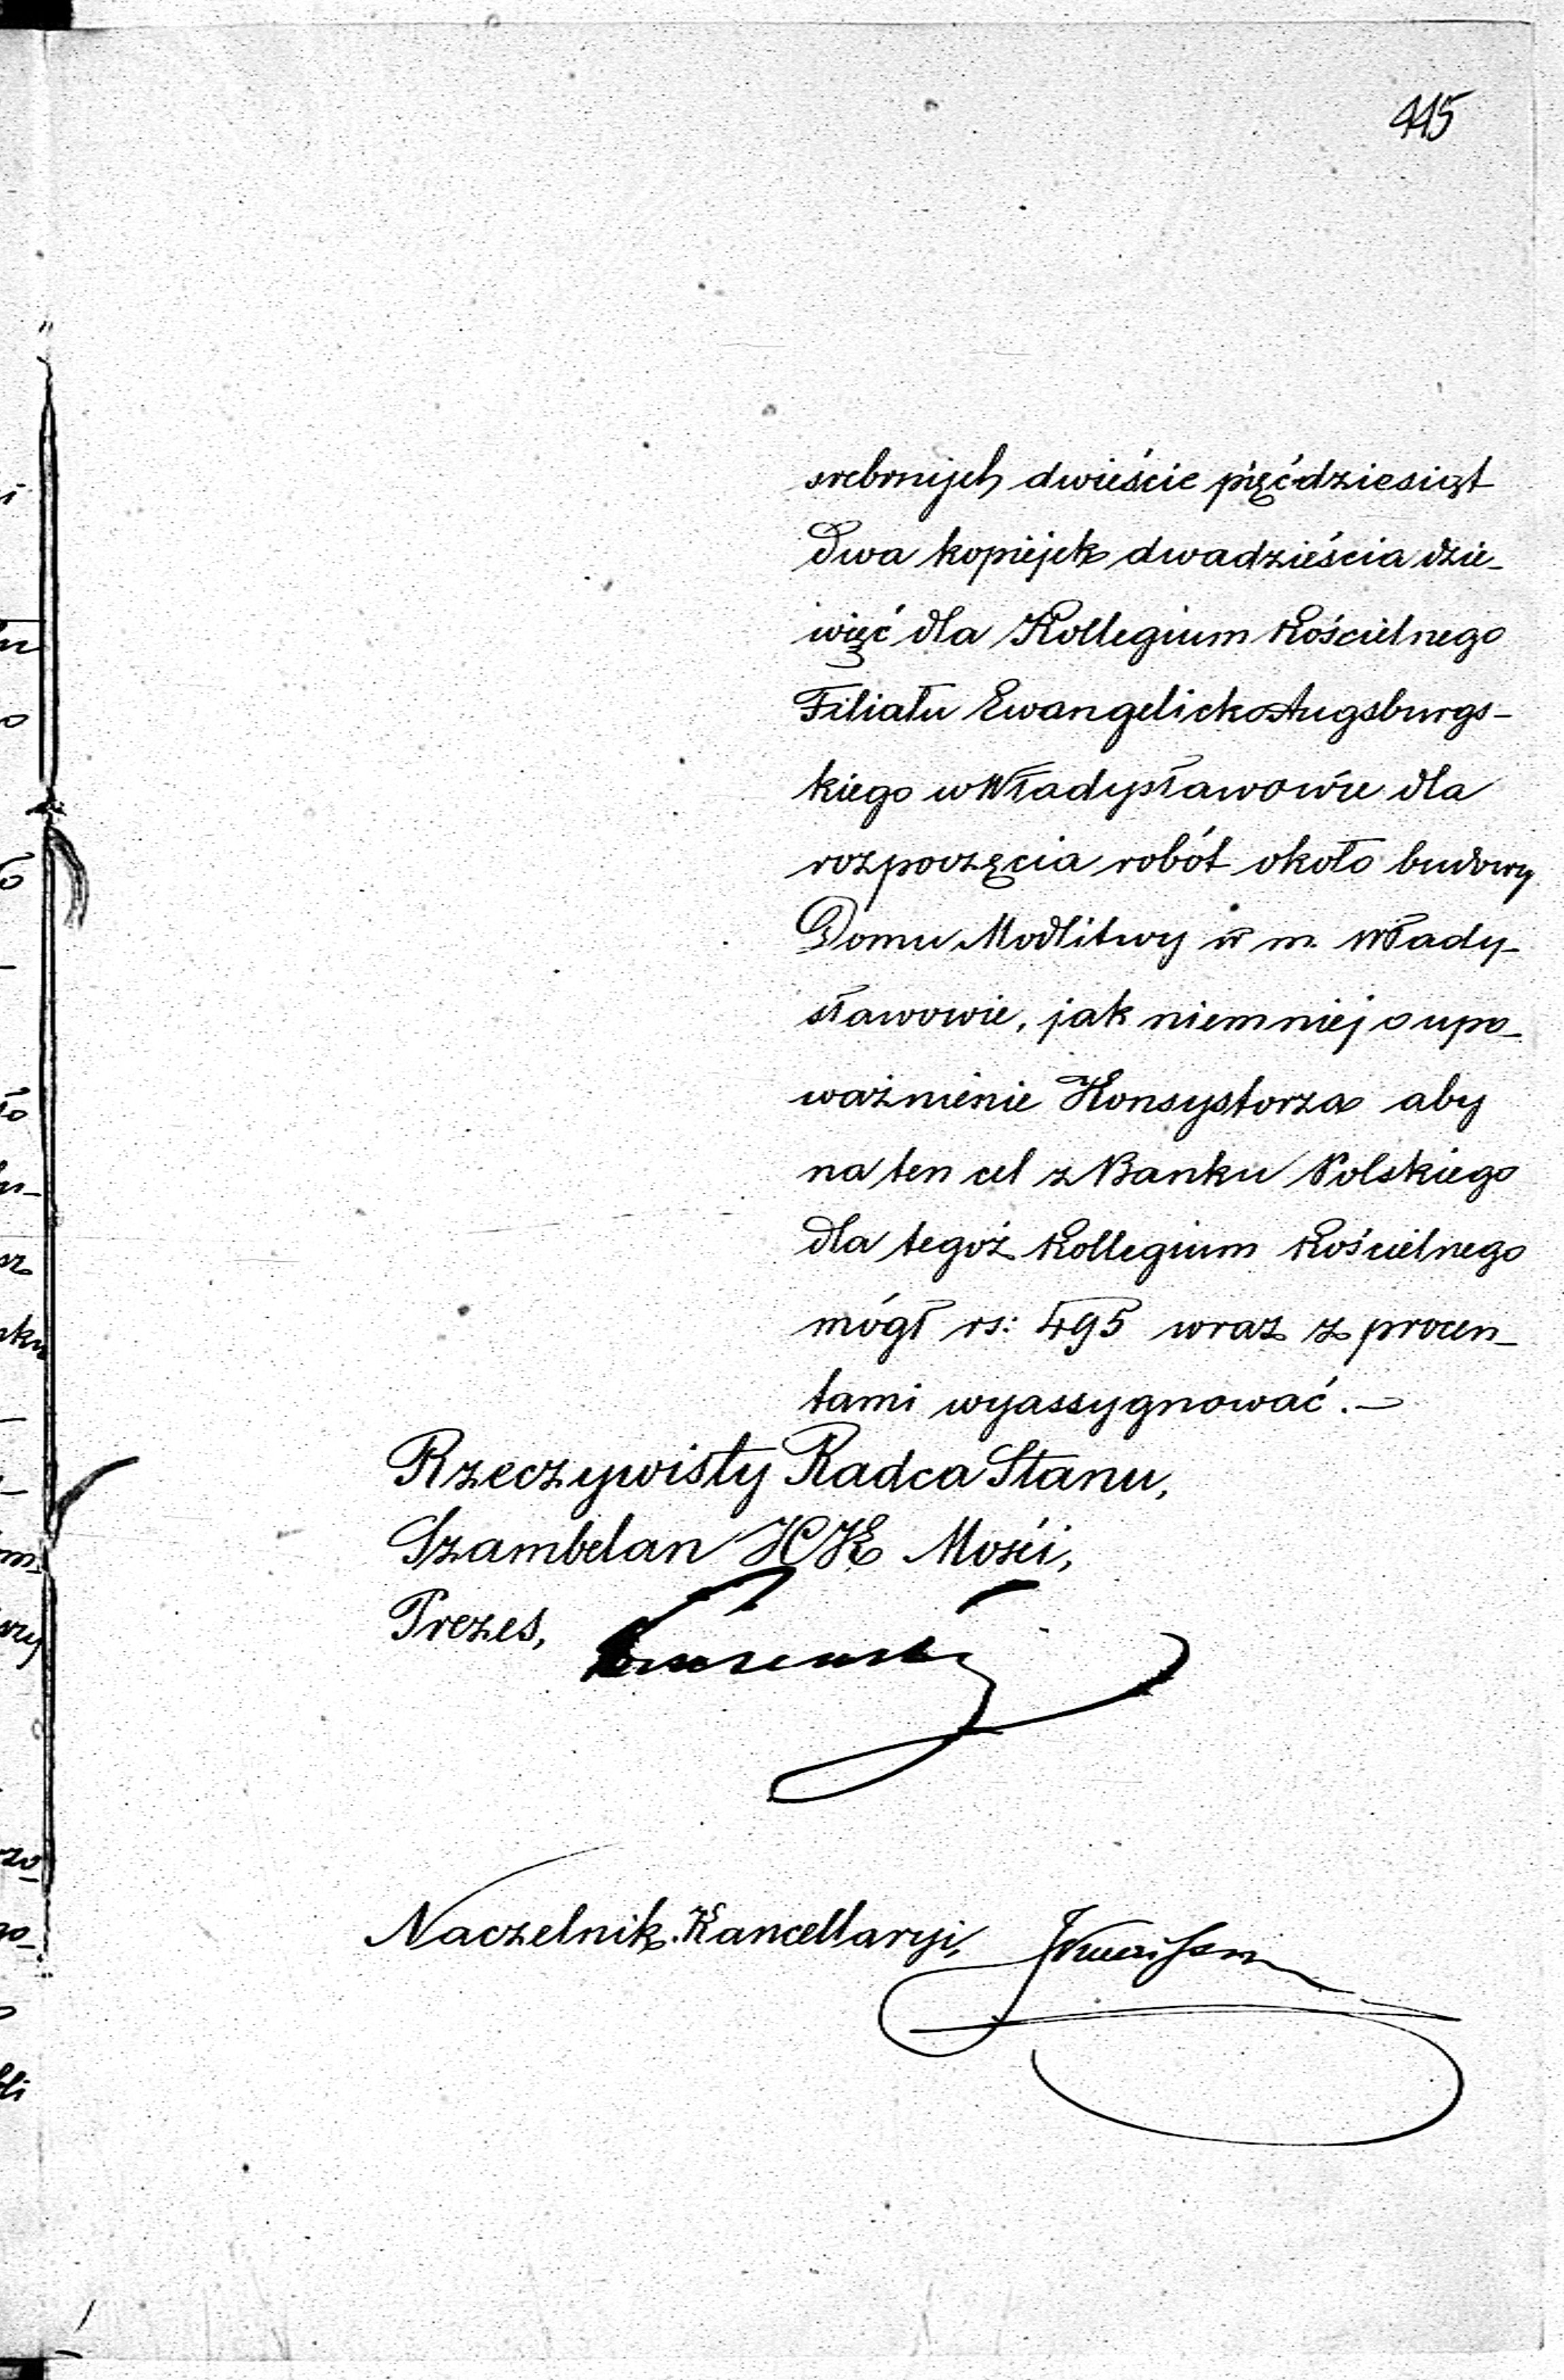 115
srebrnych dwieście pięćdziesiąt
Dwa kopiejek dwadzieścia dzie-
więć dla Kollegium Kościelnego
Filiału Ewangelicko Augsburgs-
kiego w Władysławowie dla
rozpoczęcia robót około budowy
Domu Modlitwy w m. Włady-
sławowie, jak niemniej o upo-
ważnienie Konsystorza aby
na ten cel z Banku Polskiego
dla tegoż Kollegium Kościelnego
mógł rs: 495 wraz z procen-
tami wyassygnować.—
Rzeczywisty Radca Stanu,
Szambelan JCK Mości,
Prezes,
Naczelnik Kancellaryi,